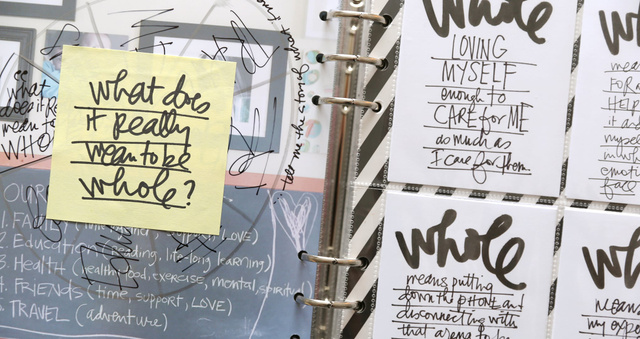 what does
it really
mean to be
whole?
what
does it
mean to
tell me the story of what
OUR
1. FAMILY SUPPORT, LOVE)
2. Education (reading, life-long learning)
3. Health (healthy food, exercise, mental, spiritual)
4. FRIENDS (time, support, LOVE)
5. TRAVEL (adventure)
whole
LOVING
MYSELF
enough to
CARE for ME
as much as
I care for them
whole
means putting
down the PHONE and
disconnecting with
that arena to be
mea
FOR
HEL
it as
myse
in wh
emoti
fac
wh
mean
my exp